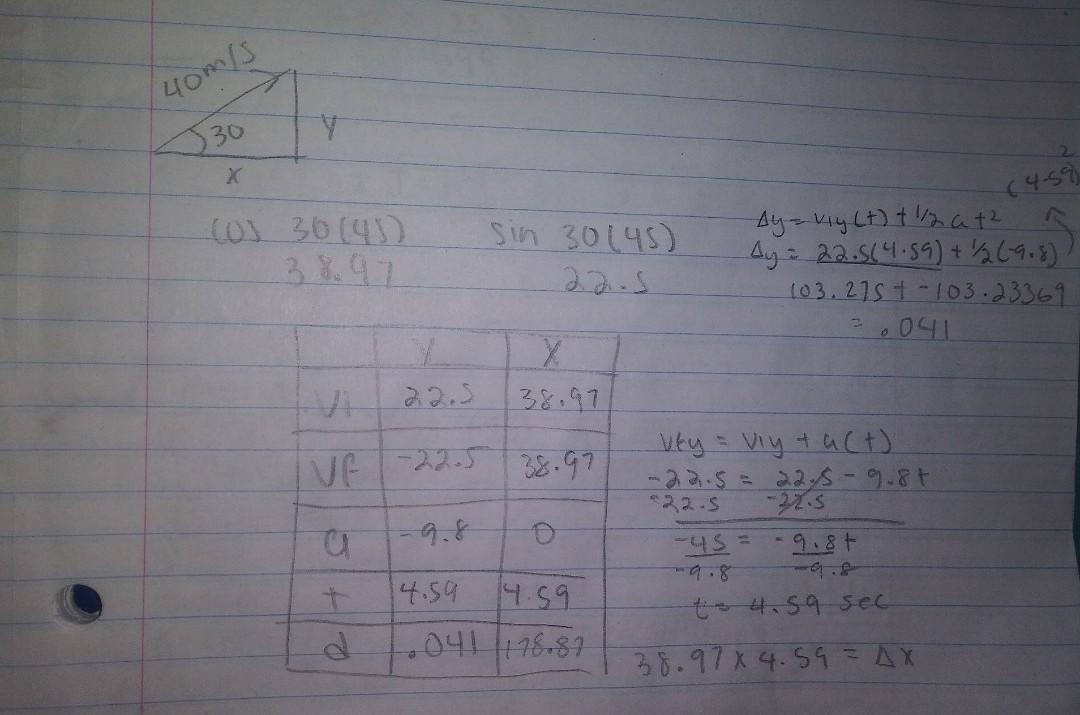 40m/s
30
y
x
cos 30(45) sin 30(45)
38.97 22.5
(4.59)²
Δy = Viy(t) + 1/2 at²
Δy = 22.5(4.59) + 1/2(-9.8)
103.275 + -103.23369
= .041
Y X
Vi 22.5 38.97
VF -22.5 38.97
a -9.8 0
t 4.59 4.59
d .041 178.87
Vfy = Viy + a(t)
-22.5 = 22.5 - 9.8t
-22.5 -22.5
-45 = -9.8t
-9.8 -9.8
t = 4.59 sec
38.97 x 4.59 = Δx